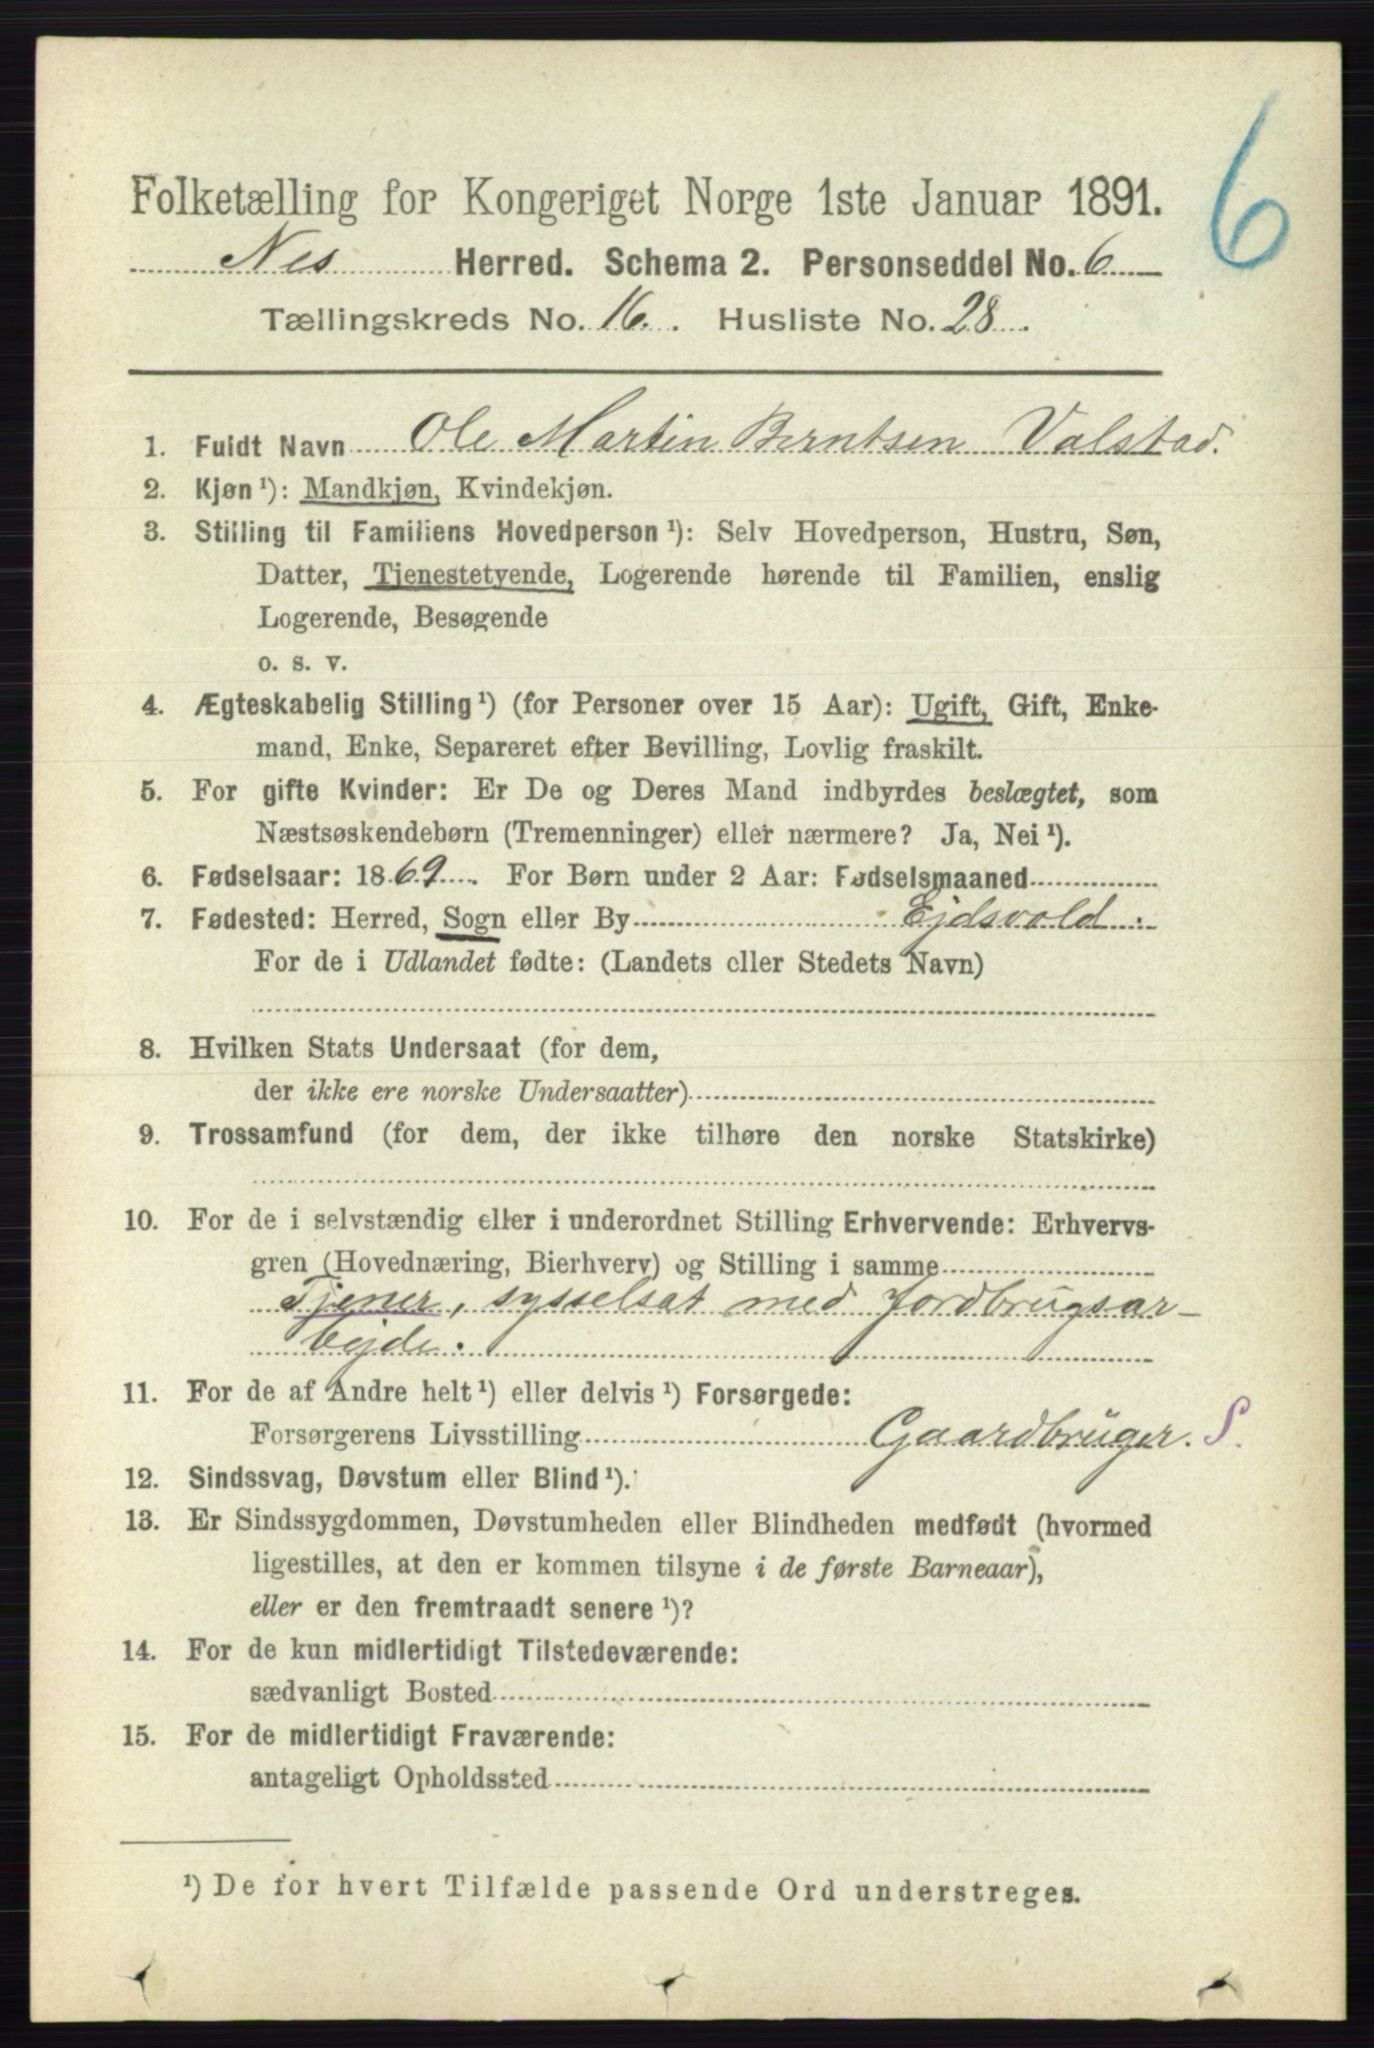 6
Folketælling for Kongeriget Norge 1ste Januar 1891.
Nes Herred. Schema 2. Personseddel No. 6
Tællingskreds No. 16. Husliste No. 28.
1. Fuldt Navn Ole Martin Berntsen Valstad.
2. Kjøn¹): Mandkjøn, Kvindekjøn.
3. Stilling til Familiens Hovedperson¹): Selv Hovedperson, Hustru, Søn,
Datter, Tjenestetyende, Logerende hørende til Familien, enslig
Logerende, Besøgende
o. s. v.
4. Ægteskabelig Stilling¹) (for Personer over 15 Aar): Ugift, Gift, Enke-
mand, Enke, Separeret efter Bevilling, Lovlig fraskilt.
5. For gifte Kvinder: Er De og Deres Mand indbyrdes beslægtet, som
Næstsøskendebørn (Tremenninger) eller nærmere? Ja, Nei¹).
6. Fødselsaar: 1869. For Børn under 2 Aar: Fødselsmaaned
7. Fødested: Herred, Sogn eller By Ejdsvold.
For de i Udlandet fødte: (Landets eller Stedets Navn)
8. Hvilken Stats Undersaat (for dem,
der ikke ere norske Undersaatter)
9. Trossamfund (for dem, der ikke tilhøre den norske Statskirke)
10. For de i selvstændig eller i underordnet Stilling Erhvervende: Erhvervs-
gren (Hovednæring, Bierhverv) og Stilling i samme
Tjener, sysselsat med Jordbrugsar-
bejde.
11. For de af Andre helt¹) eller delvis¹) Forsørgede:
Forsørgerens Livsstilling Gaardbruger. S.
12. Sindssvag, Døvstum eller Blind¹).
13. Er Sindssygdommen, Døvstumheden eller Blindheden medfødt (hvormed
ligestilles, at den er kommen tilsyne i de første Barneaar),
eller er den fremtraadt senere¹)?
14. For de kun midlertidigt Tilstedeværende:
sædvanligt Bosted
15. For de midlertidigt Fraværende:
antageligt Opholdssted
¹) De for hvert Tilfælde passende Ord understreges.